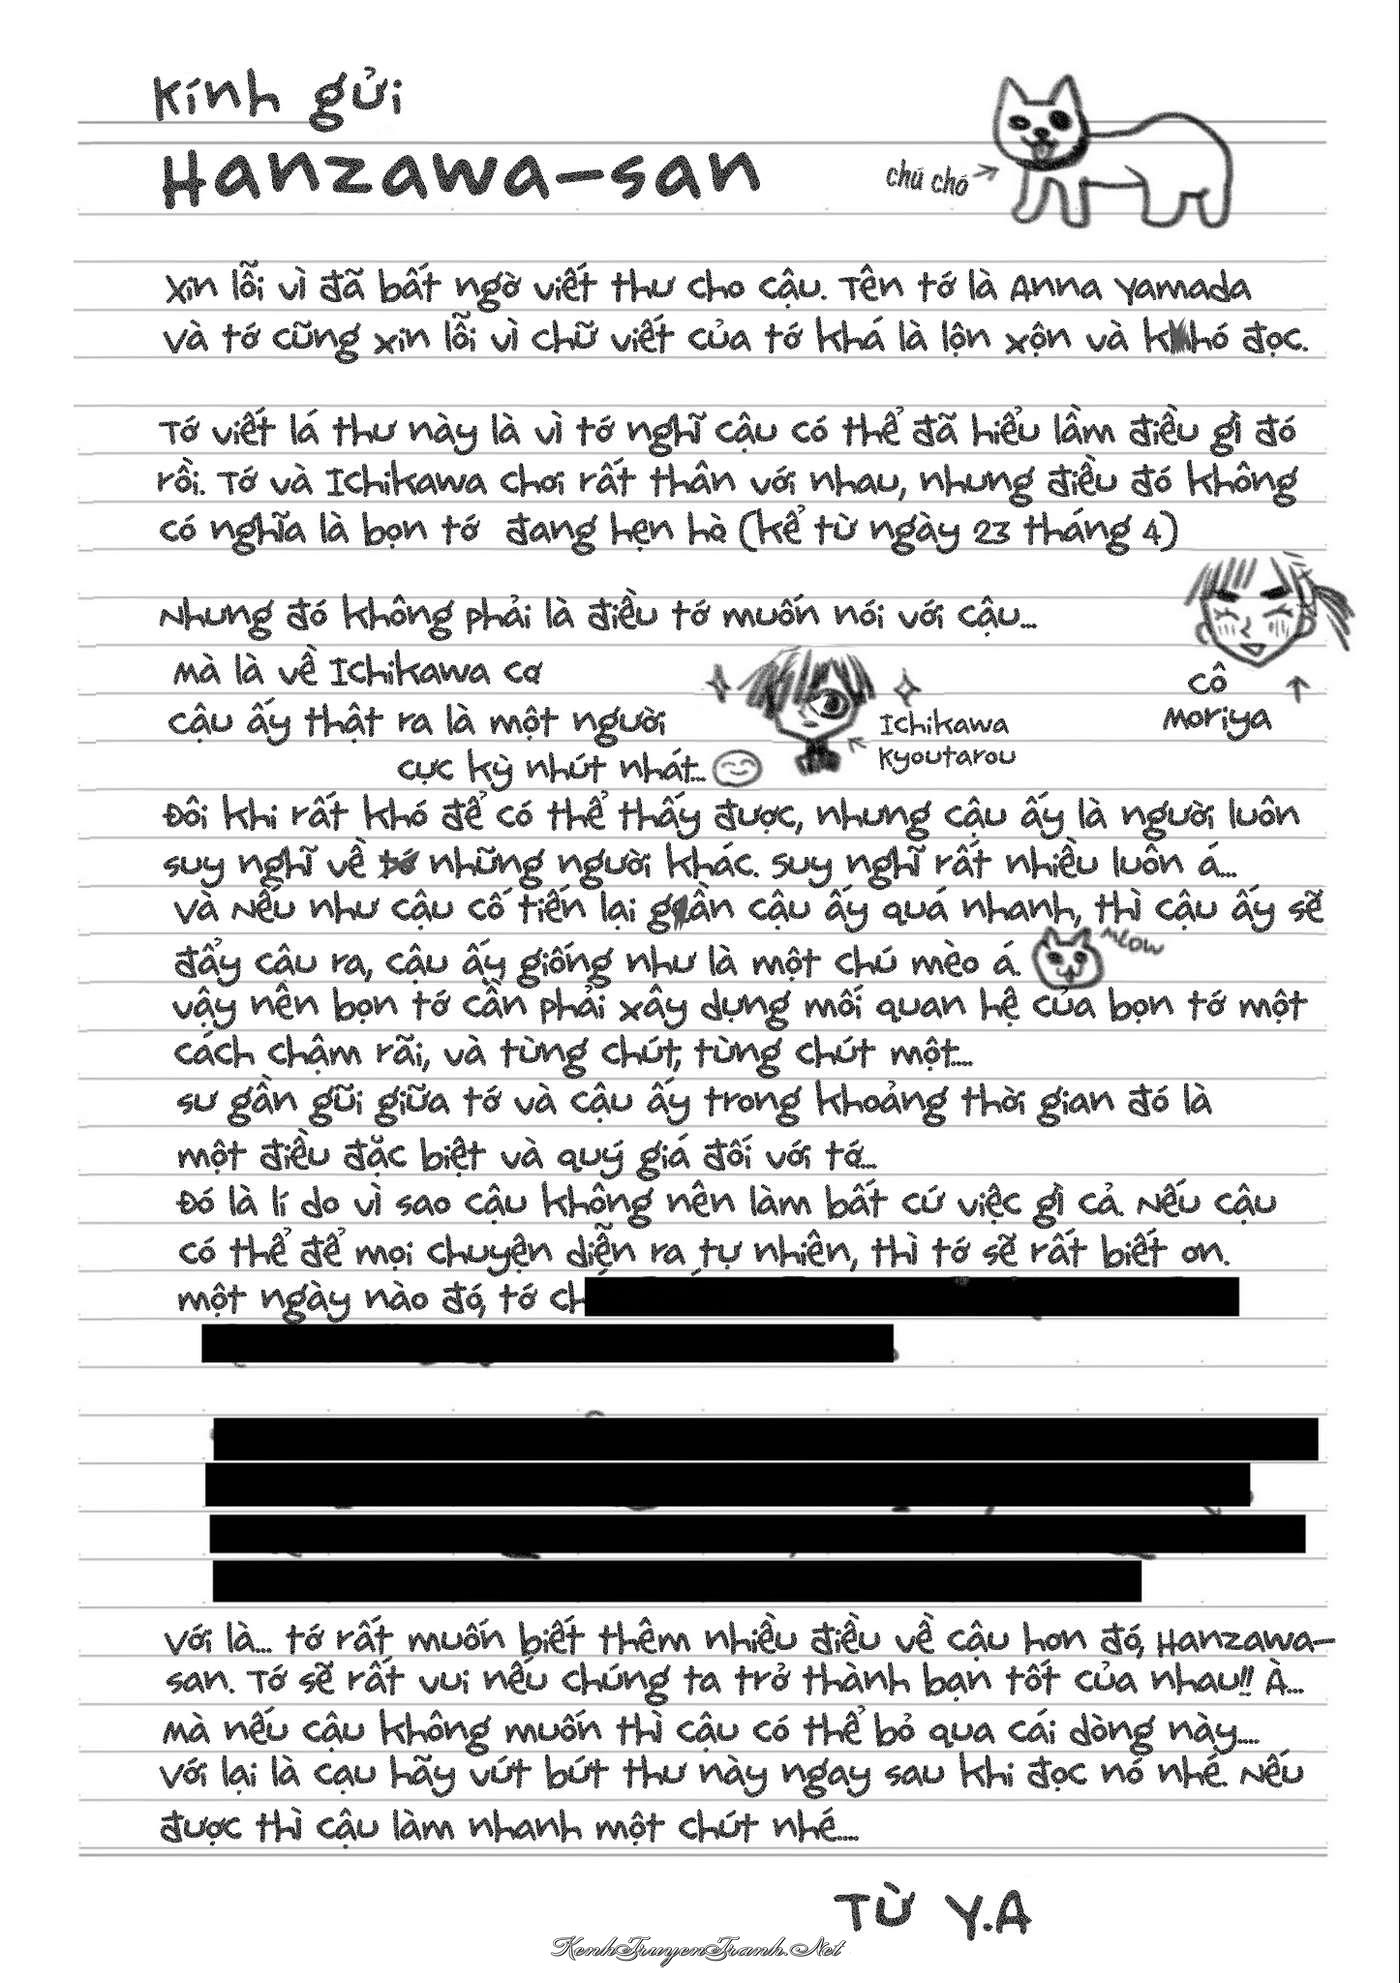 Kính gửi
Hanzawa-san
chú chó
Xin lỗi vì đã bất ngờ viết thư cho cậu. Tên tớ là Anna Yamada
và tớ cũng xin lỗi vì chữ viết của tớ khá là lộn xộn và khó đọc.
Tớ viết lá thư này là vì tớ nghĩ cậu có thể đã hiểu lầm điều gì đó
rồi. Tớ và Ichikawa chơi rất thân với nhau, nhưng điều đó không
có nghĩa là bọn tớ đang hẹn hò (kể từ ngày 23 tháng 4)
Nhưng đó không phải là điều tớ muốn nói với cậu...
mà là về Ichikawa cơ
cậu ấy thật ra là một người
cực kỳ nhút nhát...
Ichikawa
Kyoutarou
cô
Moriya
Đôi khi rất khó để có thể thấy được, nhưng cậu ấy là người luôn
suy nghĩ về những người khác. Suy nghĩ rất nhiều luôn á...
và Nếu như cậu cố tiến lại gần cậu ấy quá nhanh, thì cậu ấy sẽ
đẩy câu ra, cậu ấy giống như là một chú mèo á.
meow
vậy nên bọn tớ cần phải xây dựng mối quan hệ của bọn tớ một
cách chậm rãi, và từng chút, từng chút một...
sư gần gũi giữa tớ và cậu ấy trong khoảng thời gian đó là
một điều đặc biệt và quý giá đối với tớ...
Đó là lí do vì sao cậu không nên làm bất cứ việc gì cả. Nếu cậu
có thể để mọi chuyện diễn ra tự nhiên, thì tớ sẽ rất biết ơn.
một ngày nào đó, tớ ch
Với là... tớ rất muốn biết thêm nhiều điều về cậu hơn đó, Hanzawa-
san. Tớ sẽ rất vui nếu chúng ta trở thành bạn tốt của nhau!! À...
Mà nếu cậu không muốn thì cậu có thể bỏ qua cái dòng này....
Với lại là cạu hãy vứt bứt thư này ngay sau khi đọc nó nhé. Nếu
được thì cậu làm nhanh một chút nhé....
Từ Y.A
KenhTruyenTranh.Net